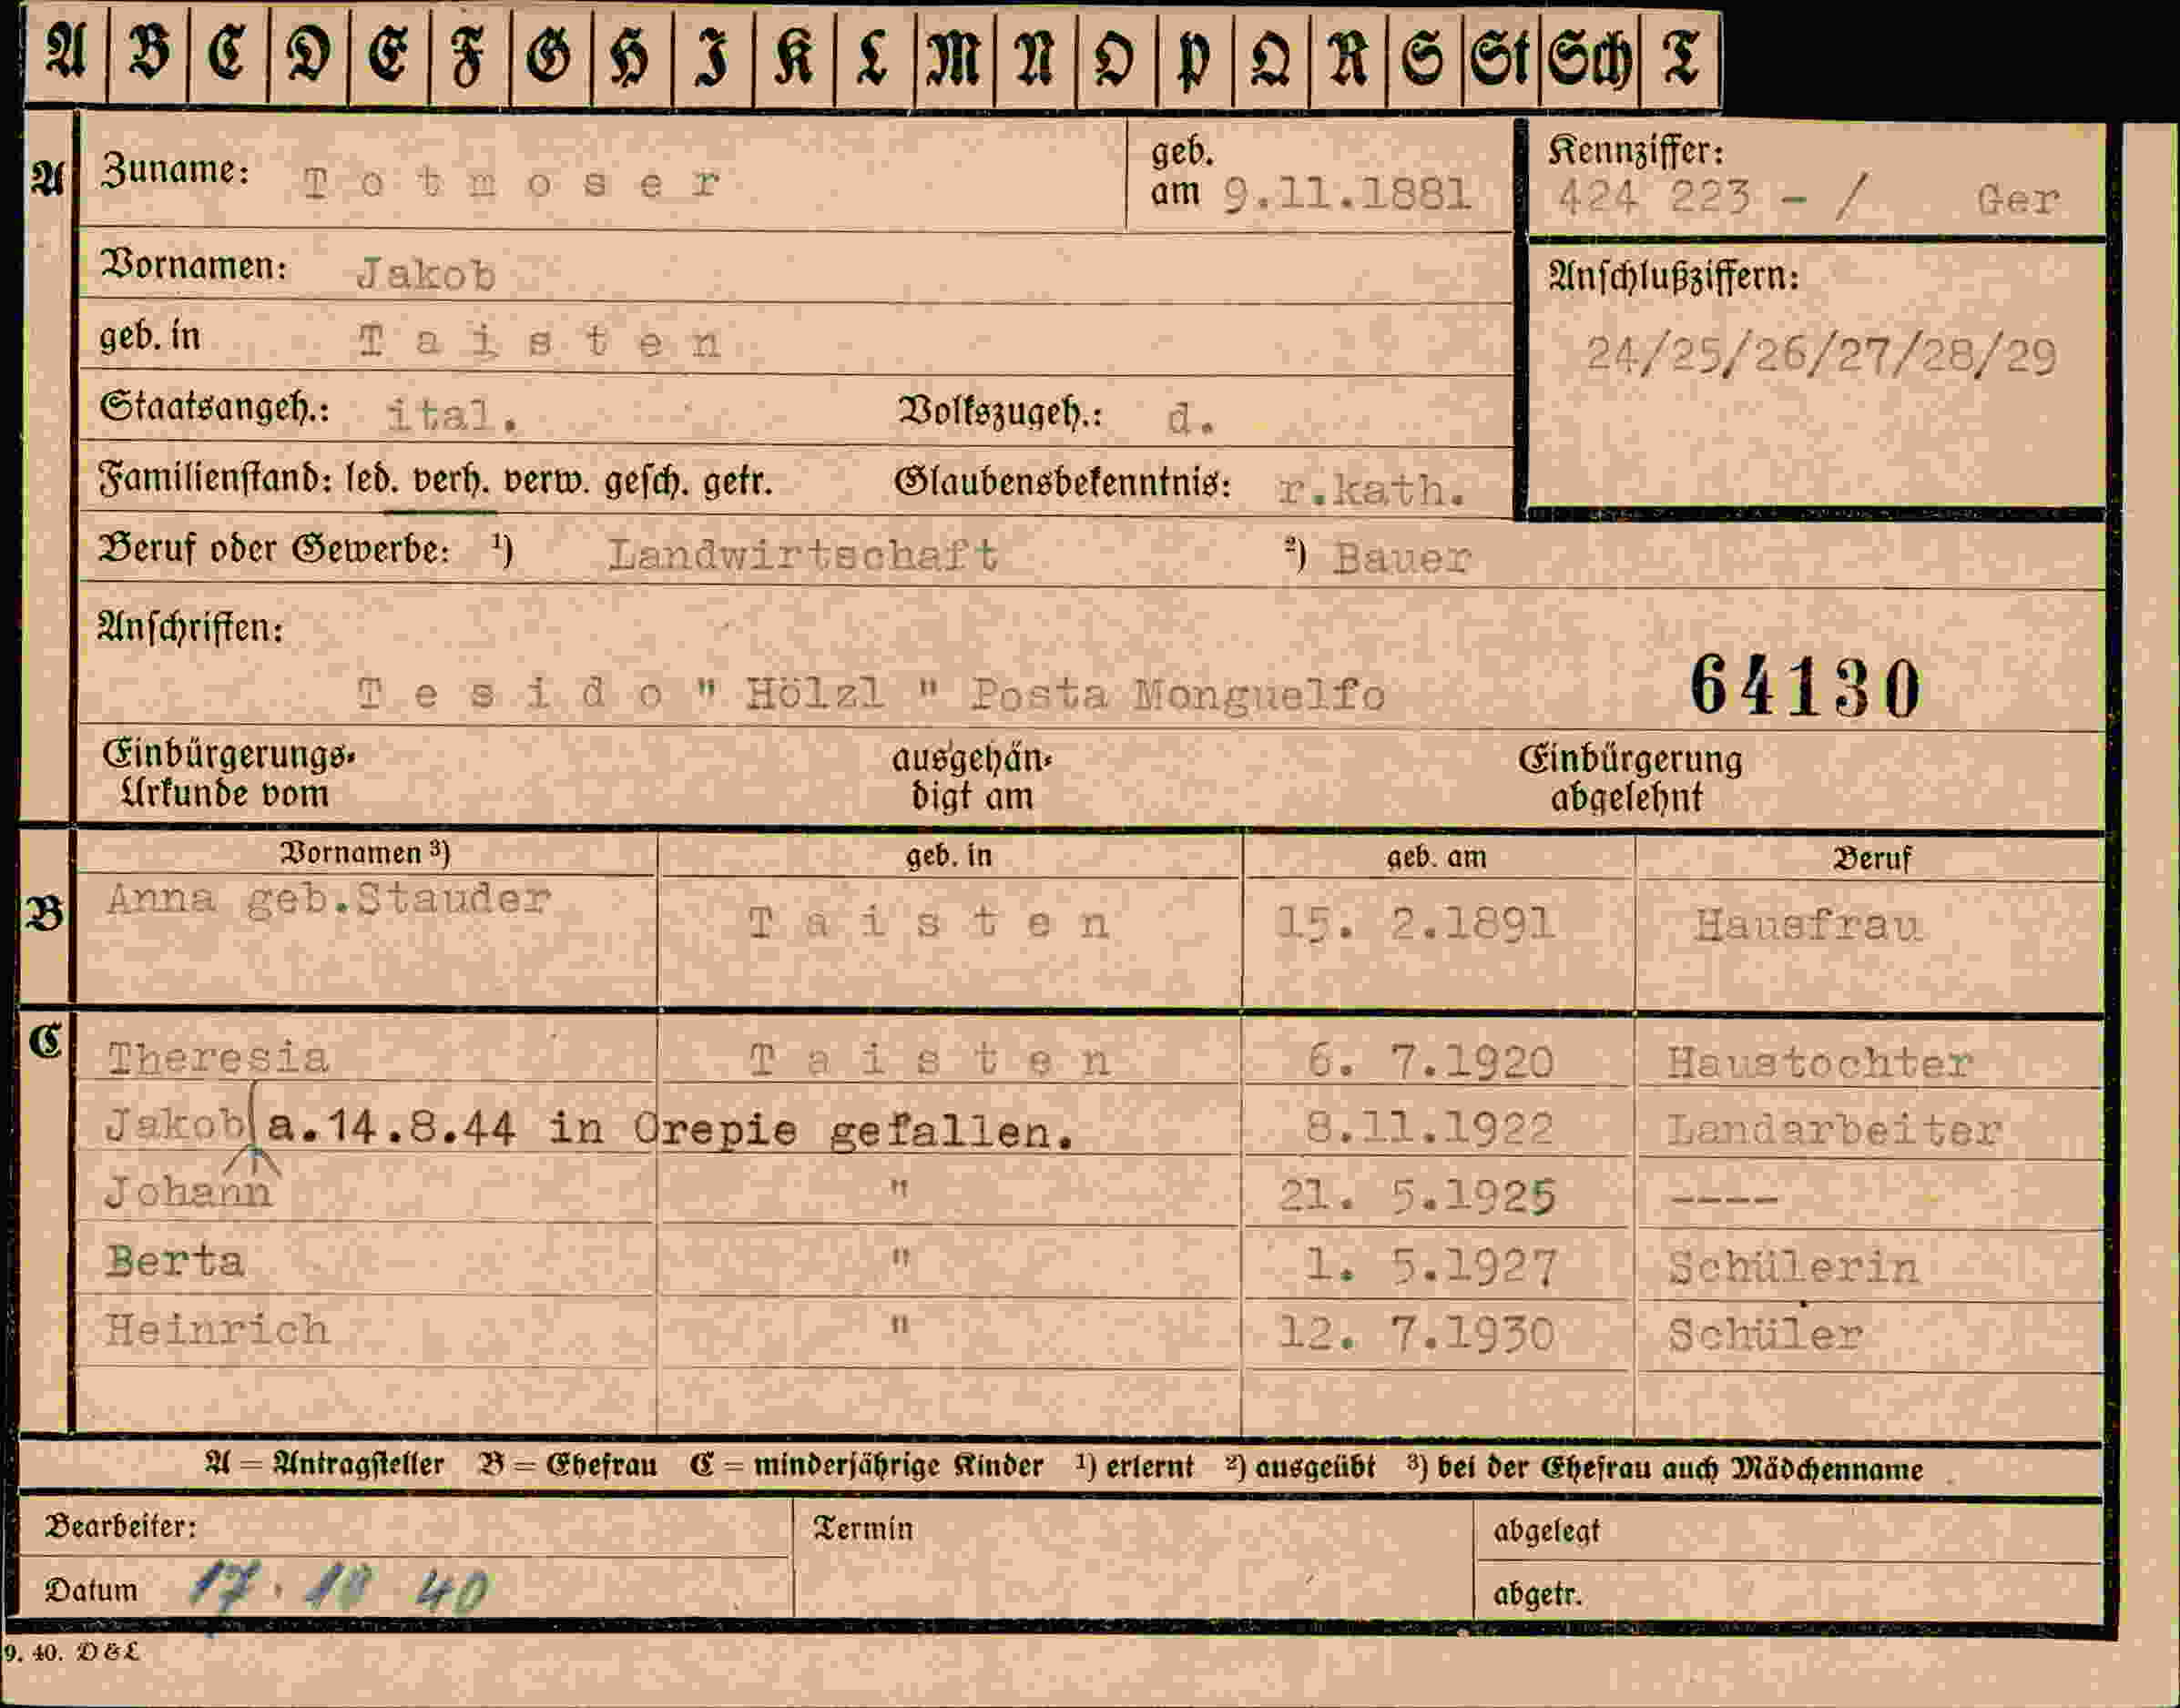 A B C D E F G H I K L M N O P Q R S St Sch T
A Zuname: Totmoser geb. am 9.11.1881 Kennziffer: 424 223 - / Ger
Vornamen: Jakob Anschlußziffern:
geb. in Taisten 24/25/26/27/28/29
Staatsangeh.: ital. Volkszugeh.: d.
Familienstand: led. verh. verw. gesch. getr. Glaubensbekenntnis: r.kath.
Beruf oder Gewerbe: 1) Landwirtschaft 2) Bauer
Anschriften:
Tesido " Hölzl " Posta Monguelfo 64130
Einbürgerungs- ausgehän- Einbürgerung
Urkunde vom digt am abgelehnt
Vornamen 3) geb. in geb. am Beruf
B Anna geb.Stauder Taisten 15. 2.1891 Hausfrau
C Theresia Taisten 6. 7.1920 Haustochter
Jakob a.14.8.44 in Orepie gefallen. 8.11.1922 Landarbeiter
Johann " 21. 5.1925 ----
Berta " 1. 5.1927 Schülerin
Heinrich " 12. 7.1930 Schüler
A = Antragsteller B = Ehefrau C = minderjährige Kinder 1) erlernt 2) ausgeübt 3) bei der Ehefrau auch Mädchenname
Bearbeiter: Termin abgelegt
Datum 17. 10 40 abgetr.
9. 40. D&L